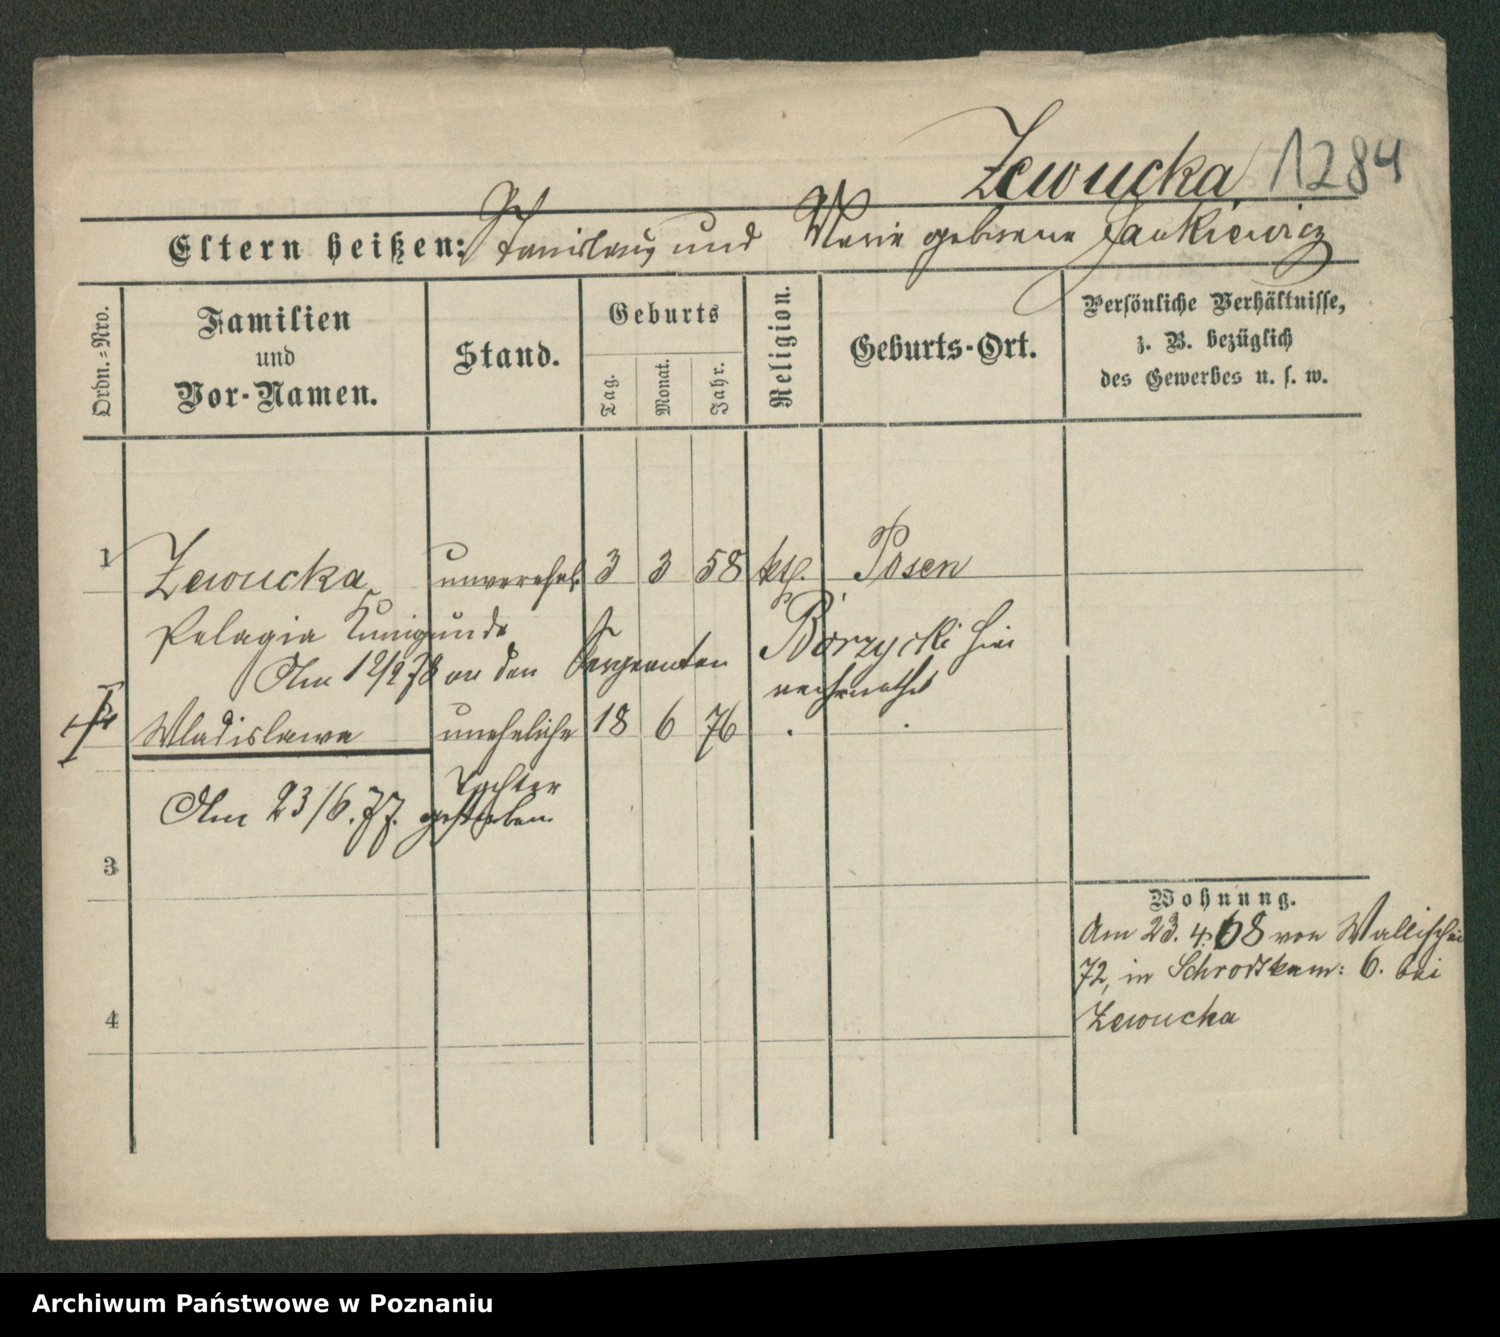 Zewucka 1284
Eltern heißen: Stanislaus und Marie geborene Jankiewicz
Ordn.=Nro.
Familien
und
Vor-Namen.
Stand.
Geburts
Tag.
Monat.
Jahr.
Religion.
Geburts-Ort.
Persönliche Verhältnisse,
z. B. bezüglich
des Gewerbes u. s. w.
1 Zewucka unverehel. 3 3 58 kth. Posen
Pelagia Kunigunde
Am 12/2 78 an den Sergeanten Borzycki hier
verheirathet
Wladislawa uneheliche 18 6 76
Tochter
Am 23/6. 77. gestorben
3
4
Wohnung.
Am 23. 4. 68 von Wallischei
72, in Schrodkam: 6. bei
Zewucka
Archiwum Państwowe w Poznaniu